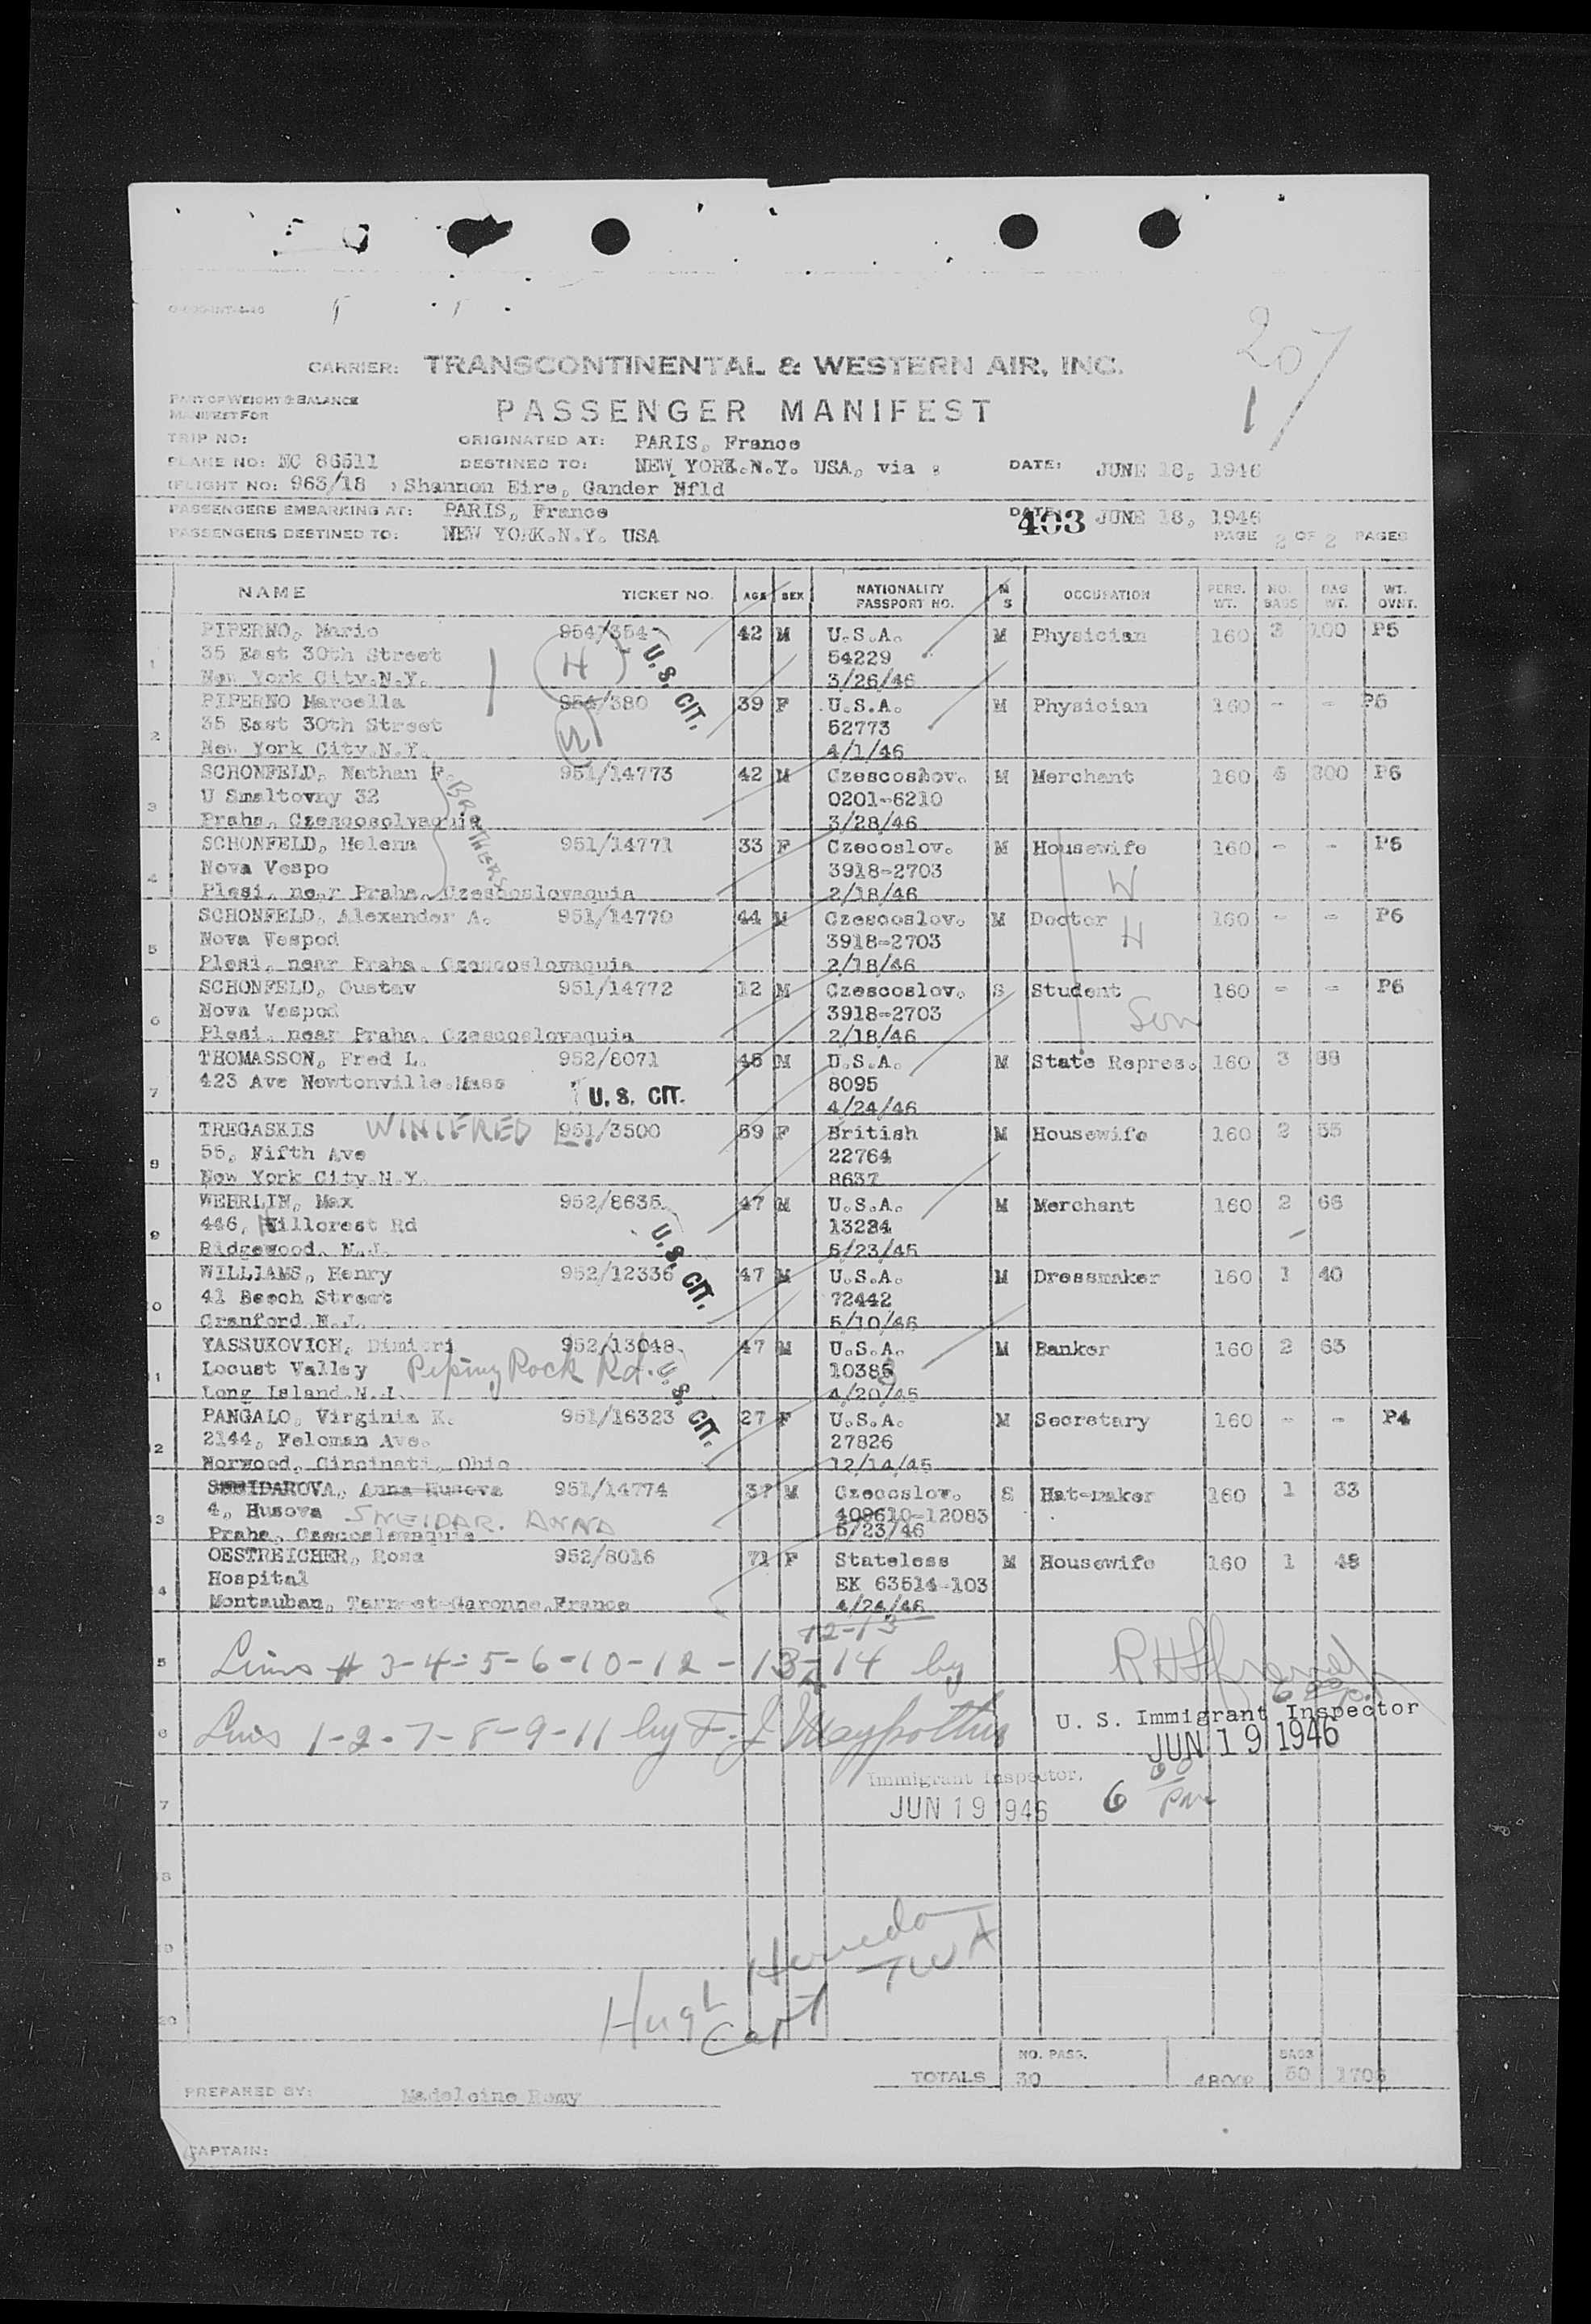 207
1
CARRIER: TRANSCONTINENTAL & WESTERN AIR, INC.
PART OF WEIGHT & BALANCE
MANIFEST FOR
PASSENGER MANIFEST
TRIP NO: ORIGINATED AT: PARIS, France
PLANE NO: NC 86511 DESTINED TO: NEW YORK.N.Y. USA, via : DATE: JUNE 18, 1946
(FLIGHT NO: 963/18 ) Shannon Eire, Gander Nfld
PASSENGERS EMBARKING AT: PARIS, France DATE: JUNE 18, 1946
403
PASSENGERS DESTINED TO: NEW YORK.N.Y. USA PAGE 2 OF 2 PAGES
NAME TICKET NO. AGE SEX NATIONALITY PASSPORT NO. M S OCCUPATION PERS. WT. NO. BAGS BAG WT. WT. OVNT.
PIPERNO, Mario 954/354 42 M U.S.A. M Physician 160 3 100 P5
35 East 30th Street H U.S. CIT. 54229
1 New York City.N.Y. 3/26/46
PIPERNO Marcella 954/380 39 F U.S.A. M Physician 160 - - P5
35 East 30th Street W 52773
2 New York City.N.Y. 4/1/46
SCHONFELD, Nathan F. 951/14773 42 M Czescoslov. M Merchant 160 300 P6
U Smaltovny 32 BROTHERS 0201-6210
3 Praha, Czescosolvaquia 3/28/46
SCHONFELD, Helena 951/14771 33 F Czecoslov. M Housewife 160 - - P6
Nova Vespo 3918-2703 W
4 Plesi, near Praha, Czescoslovaquia 2/18/46
SCHONFELD, Alexander A. 951/14770 44 M Czescoslov. M Doctor 160 - - P6
Nova Vespod 3918-2703 H
5 Plesi, near Praha. Czescoslovaquia 2/18/46
SCHONFELD, Gustav 951/14772 12 M Czescoslov. S Student 160 - - P6
Nova Vespod 3918-2703 Son
6 Plesi, near Praha. Czescoslovaquia 2/18/46
THOMASSON, Fred L. 952/8071 48 M U.S.A. M State Repres. 160 3 88
423 Ave Newtonville.Mass U.S. CIT. 8095
7 4/24/46
TREGASKIS WINIFRED L. 951/3500 59 F British M Housewife 160 2 55
55, Fifth Ave 22764
8 New York City.N.Y. 8637
WEHRLIN, Max 952/8635 47 M U.S.A. M Merchant 160 2 66
446, Hillcrest Rd U.S. CIT. 13284
9 Ridgewood, N.J. 5/23/45
WILLIAMS, Henry 952/12336 47 M U.S.A. M Dressmaker 160 1 40
41 Beech Street 72442
0 Cranford N.J. 5/10/46
YASSUKOVICH, Dimitri 952/13048 47 M U.S.A. M Banker 160 2 63
Locust Valley Piping Rock Rd. U.S. CIT. 10385
1 Long Island.N.J. 4/20/45
PANGALO, Virginia K. 951/16323 27 F U.S.A. M Secretary 160 - - P4
2144, Feloman Ave. 27826
2 Norwood, Cincinati, Ohio 12/14/45
SNEIDAROVA, Anna Husova 951/14774 37 M Czecoslov. S Hat-maker 160 1 33
4, Husova SNEIDAR. ANNA 409610-12083
3 Praha, Czecoslovaquia 5/23/46
OESTREICHER, Rosa 952/8016 71 F Stateless M Housewife 160 1 48
Hospital EK 63514-103
4 Montauban, Tarn-et-Garonne.France 4/24/46
12-13
5 Lines # 3-4-5-6-10-12-13-14 by
6 Lines 1-2-7-8-9-11 by F. J.
U. S. Immigrant Inspector
JUN 19 1946
Immigrant Inspector.
7 JUN 19 1946 6 PM
8
Hugh
Capt TWA
20
NO. PASS. BAGS
TOTALS 30 4800 50 1705
PREPARED BY: Madeleine Remy
CAPTAIN: